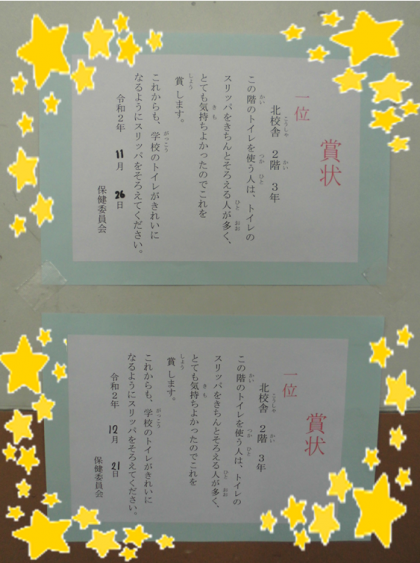 賞状
一位
北校舎 2階 3年
この階のトイレを使う人は、トイレの
スリッパをきちんとそろえる人が多く、
とても気持ちよかったのでこれを
賞します。
これからも、学校のトイレがきれいに
なるようにスリッパをそろえてください。
令和2年 11月 26日
保健委員会
賞状
一位
北校舎 2階 3年
この階のトイレを使う人は、トイレの
スリッパをきちんとそろえる人が多く、
とても気持ちよかったのでこれを
賞します。
これからも、学校のトイレがきれいに
なるようにスリッパをそろえてください。
令和2年 12月 21日
保健委員会